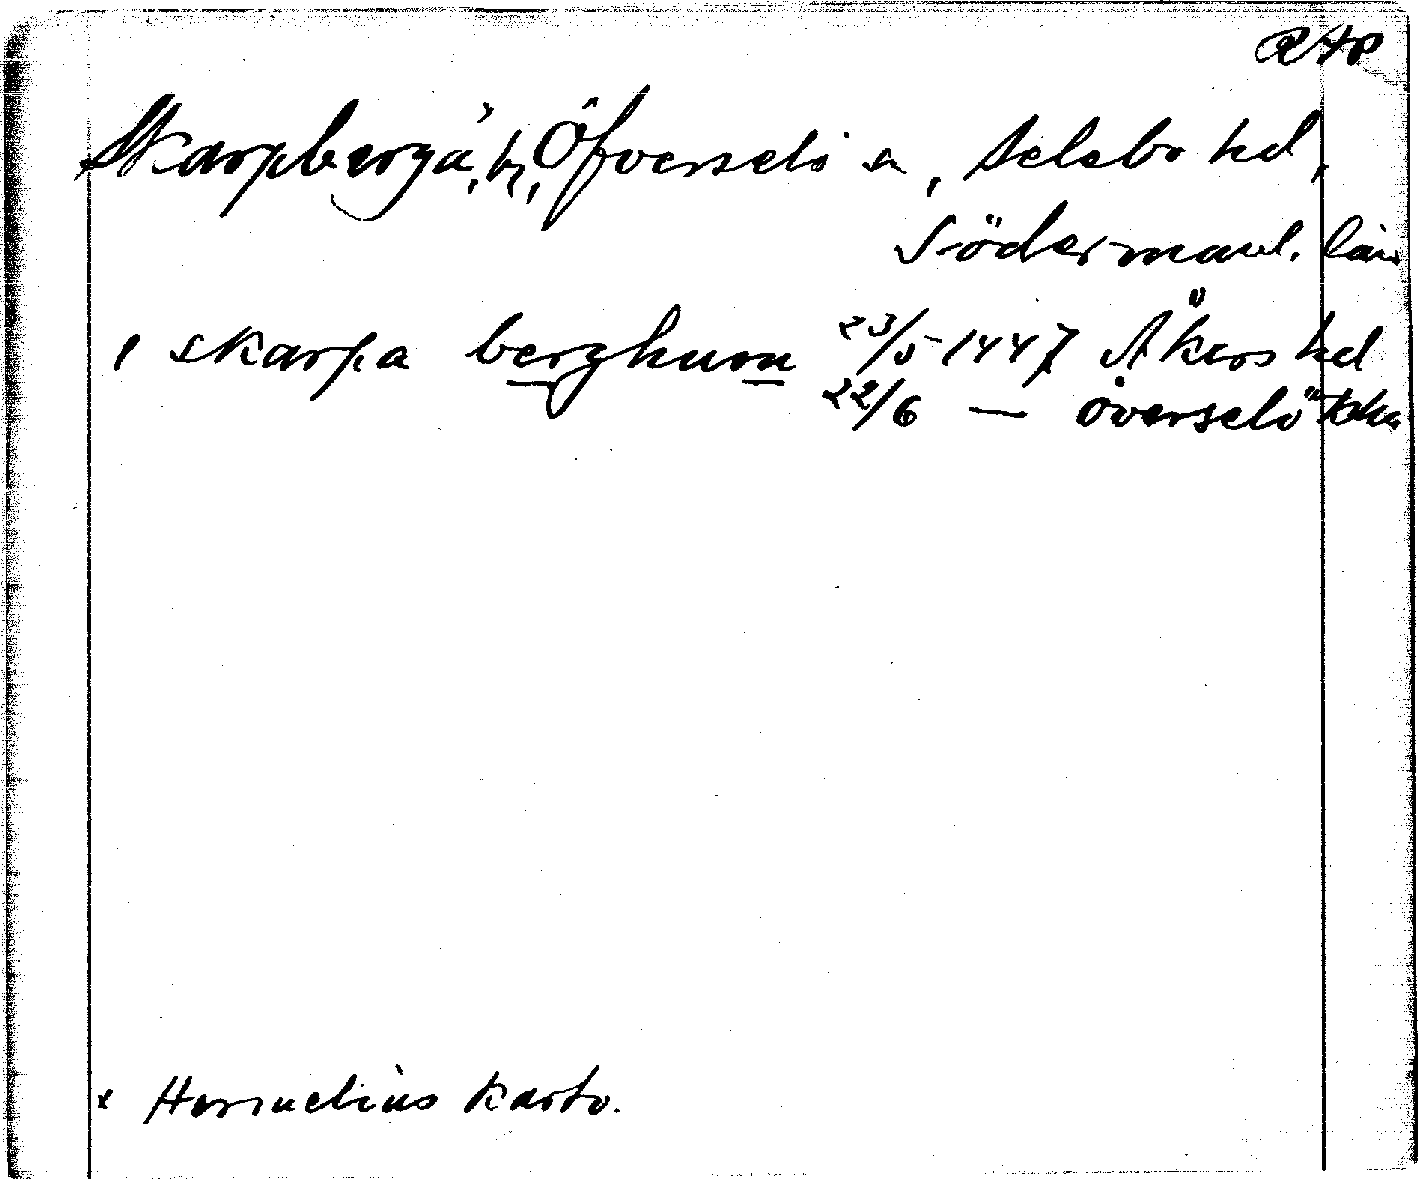 RAP
Skarpberga, by, Öfverselö sn, Selebo hd,
Södermanl. län
i skarpa berghum 23/5 1447 Åkers hd
22/6 — överselö
* Hermelins karta.